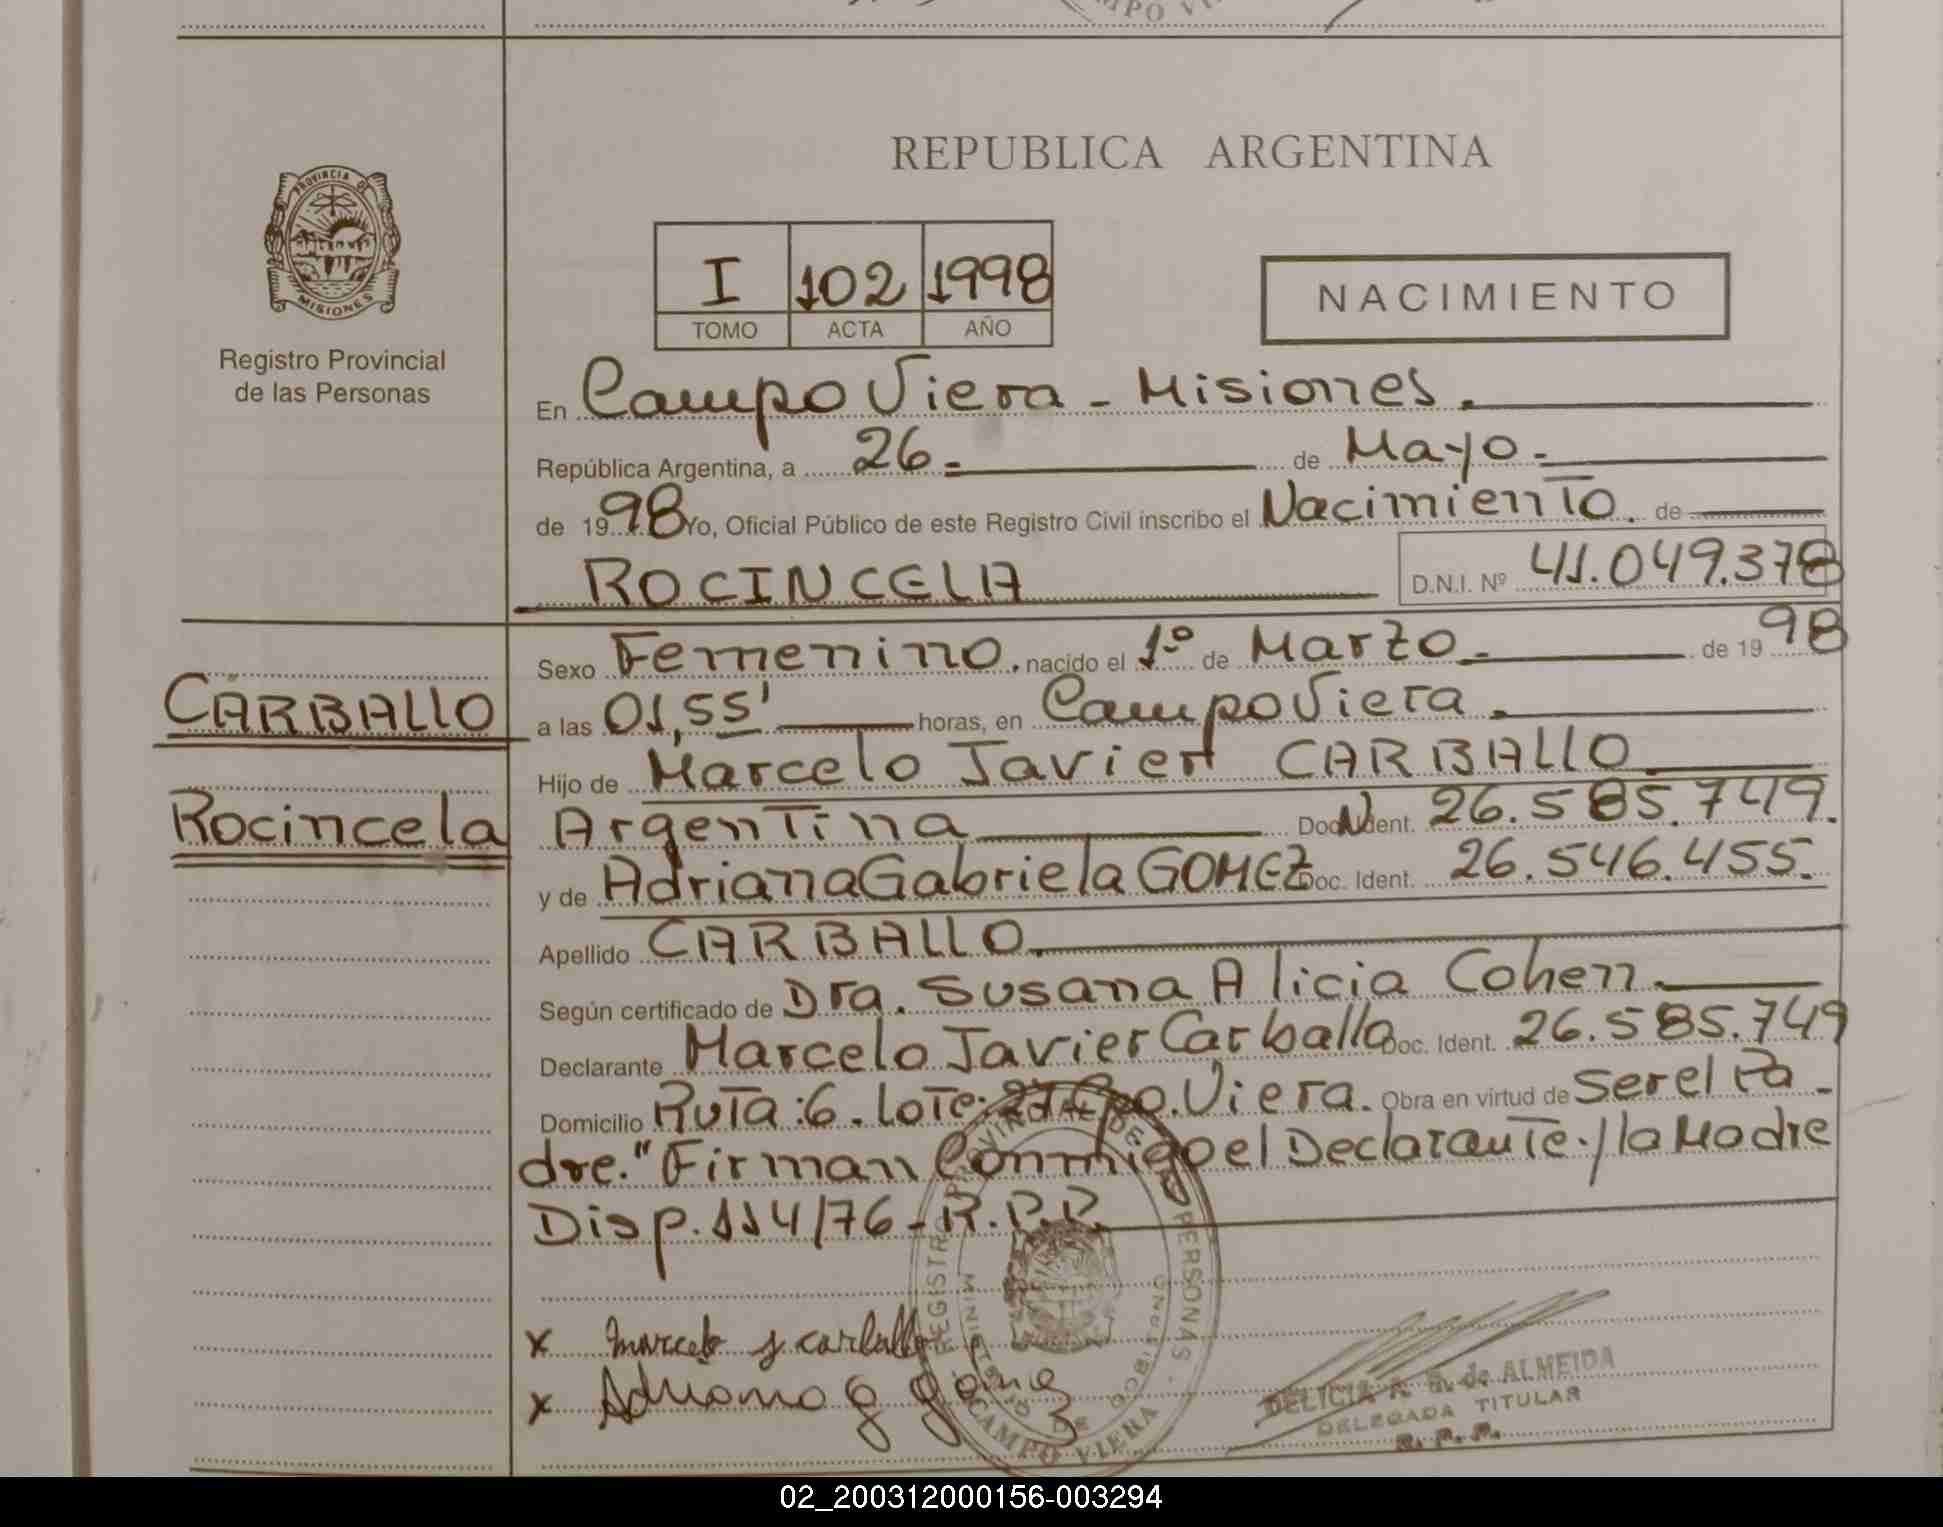 REPUBLICA ARGENTINA
PROVINCIA DE MISIONES
Registro Provincial
de las Personas
I 102 1998
TOMO ACTA AÑO
NACIMIENTO
En Campo Viera - Misiones.
República Argentina, a 26.= de Mayo.-
de 1998 Yo, Oficial Público de este Registro Civil inscribo el Nacimiento. de
ROCINCELA D.N.I. Nº 41.049.378
Sexo Femenino. nacido el 1º de Marzo.- de 1998
CARBALLO
a las 01,55' horas, en Campo Viera.
Hijo de Marcelo Javier CARBALLO.
Rocincela
Argentina Doc. Ident. 26.585.749.
y de Adriana Gabriela GOMEZ Doc. Ident. 26.546.455.
Apellido CARBALLO.
Según certificado de Dra. Susana Alicia Cohen.
Declarante Marcelo Javier Carballo Doc. Ident. 26.585.749
Domicilio Ruta:6. Lote: 27 Cpo. Viera. Obra en virtud de Ser el Pa-
dre." Firman Conmigo el Declarante./la Madre
Disp. 114/76 - R.P.P.
x Marcelo J carballo
x Adriana G gomez
REGISTRO PROVINCIAL DE PERSONAS
MINISTERIO DE GOBIERNO
CAMPO VIERA
DELICIA A. de ALMEIDA
DELEGADA TITULAR
R. P. P.
02_200312000156-003294